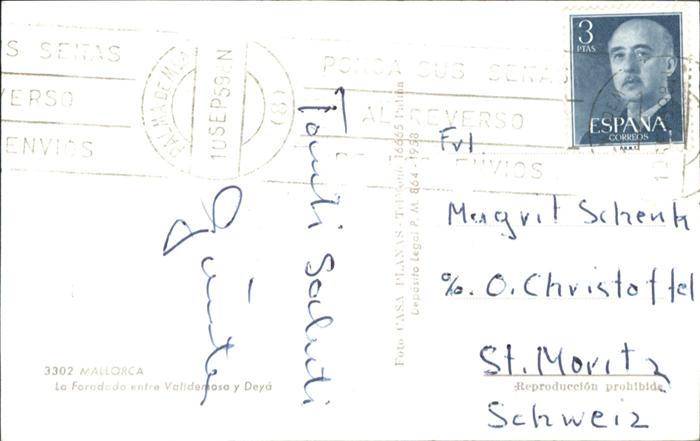 S SEÑAS
VERSO
ENVIOS
PALMA DE MCA
10 SEP 59
(8)
PONGA SUS SEÑAS
AL REVERSO
ENVIOS
3
PTAS
ESPAÑA
CORREOS
Tanti Saluti
Foto CASA PLANAS - Teléfono 16665 Palma
Depósito Legal P. M. 864 - 1958
Frl.
Margrit Schenk
%. O. Christoffel
St. Moritz
Schweiz
3302 MALLORCA
La Foradada entre Valldemosa y Deyá
Reproducción prohibida